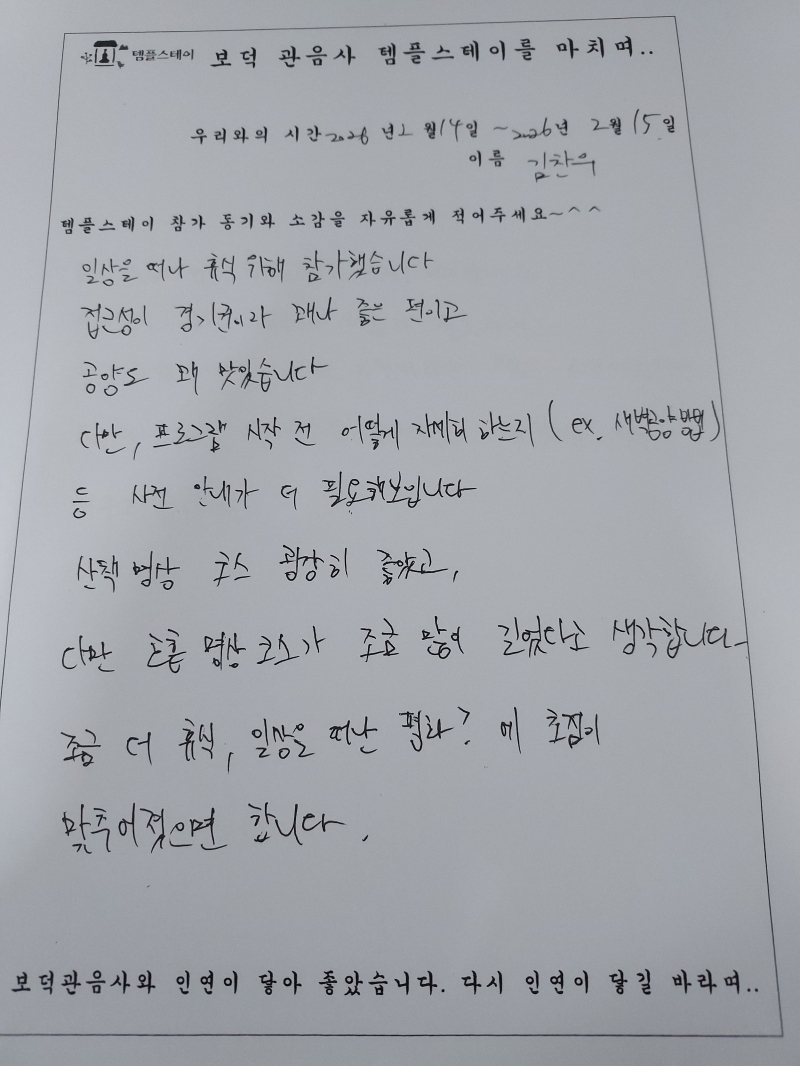 템플스테이 보덕 관음사 템플스테이를 마치며..
우리와의 시간 2026 년 2 월 14 일 ~ 2026 년 2월 15 일
이름 김찬욱
템플스테이 참가 동기와 소감을 자유롭게 적어주세요~^^
일상을 떠나 휴식 위해 참가했습니다
접근성이 경기권이라 꽤나 좋은 편이고
공양도 꽤 맛있습니다
다만, 프로그램 시작 전 어떻게 자세히 하는지 (ex. 새벽공양방법)
등 사전 안내가 더 필요해보입니다
산책 명상 코스 굉장히 좋았고,
다만 호흡 명상 코스가 조금 많이 길었다고 생각합니다
조금 더 휴식, 일상을 떠난 평화? 에 초점이
맞추어졌으면 합니다.
보덕관음사와 인연이 닿아 좋았습니다. 다시 인연이 닿길 바라며..